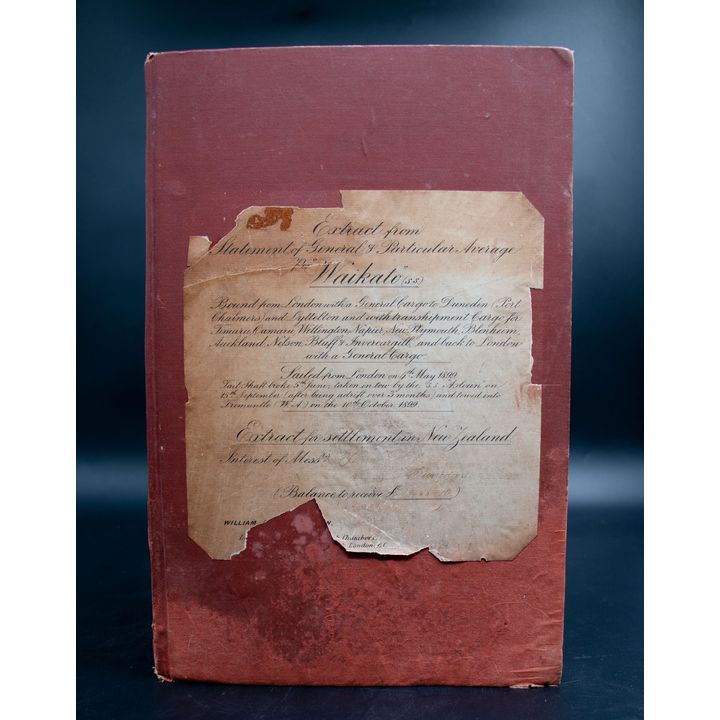 Extract from
Statement of General & Particular Average
Per
"Waikato" (s.s.)
Bound from London with a General Cargo to Dunedin (Port
Chalmers) and Lyttelton and with transhipment Cargo for
Timaru, Oamaru, Wellington, Napier, New Plymouth, Blenheim,
Auckland, Nelson, Bluff & Invercargill, and back to London
with a General Cargo.
Sailed from London on 4th May 1899
Tail Shaft broke 5th June, taken in tow by the "s.s. Asloun" on
15th September (after being adrift over 3 months) and towed into
Fremantle (W.A.) on the 10th October 1899
Extract for settlement in New Zealand
Interest of Messrs
(Balance to receive £ )
WILLIAM
Chambers,
London. E.C.